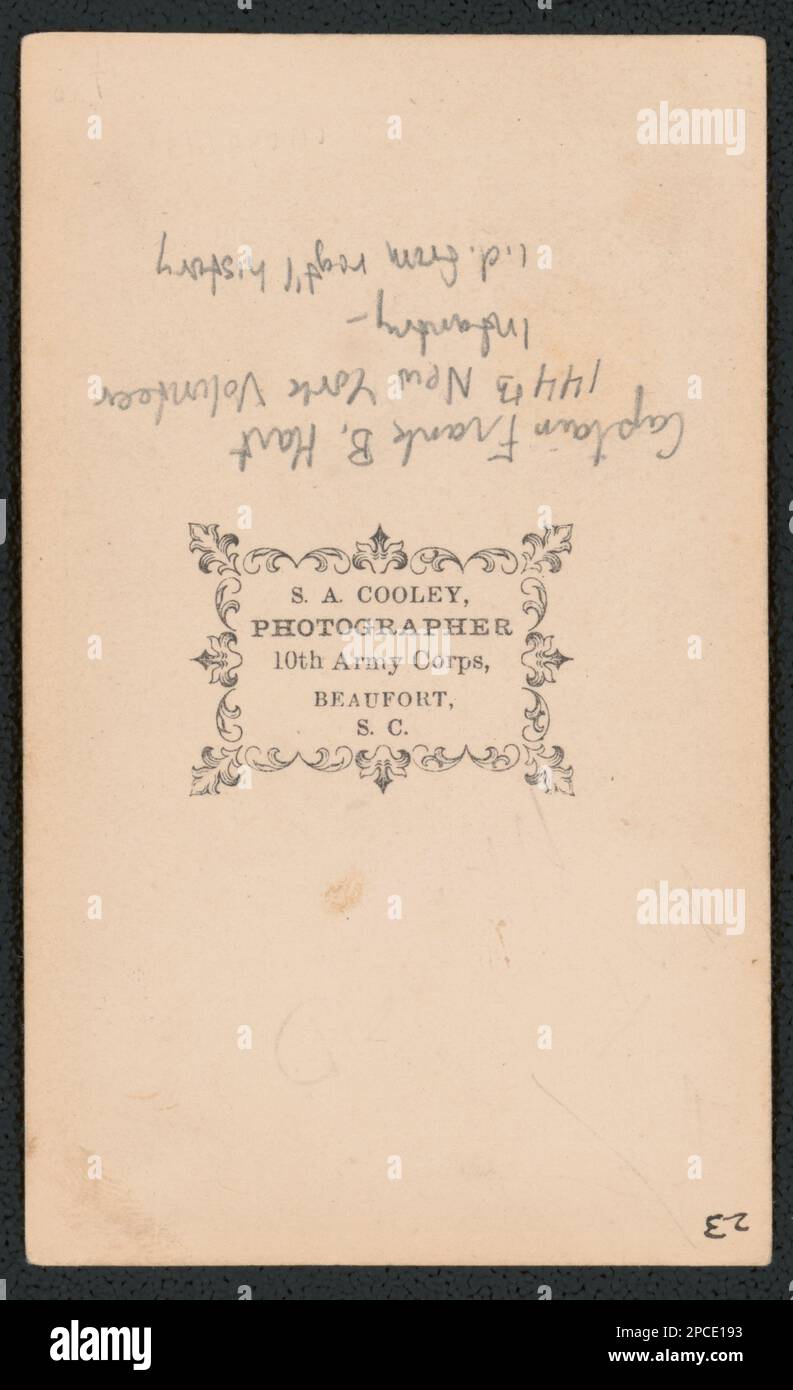 Captain Frank B. Hart
144th New York Volunteer
Infantry-
i.d. from regt'l history
S. A. COOLEY,
PHOTOGRAPHER
10th Army Corps,
BEAUFORT,
S. C.
23
alamy
alamy
alamy
alamy
Image ID: 2PCE193
www.alamy.com